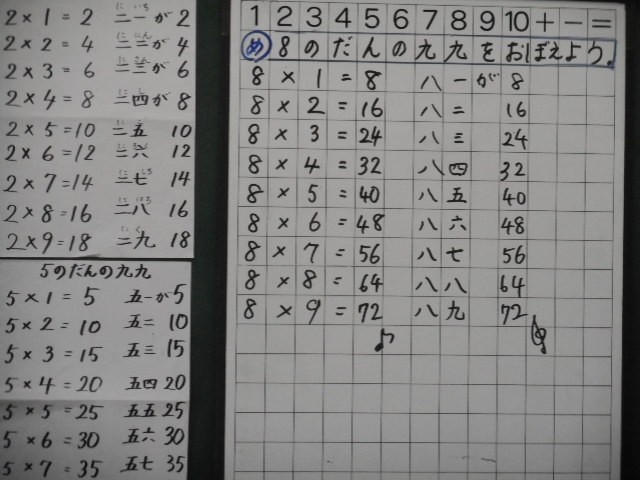 2×1=2 二一が2
2×2=4 二二が4
2×3=6 二三が6
2×4=8 二四が8
2×5=10 二五 10
2×6=12 二六 12
2×7=14 二七 14
2×8=16 二八 16
2×9=18 二九 18
5のだんの九九
5×1=5 五一が5
5×2=10 五二 10
5×3=15 五三 15
5×4=20 五四 20
5×5=25 五五 25
5×6=30 五六 30
5×7=35 五七 35
1 2 3 4 5 6 7 8 9 10 + − =
め 8のだんの九九をおぼえよう。
8×1=8 八一が 8
8×2=16 八二 16
8×3=24 八三 24
8×4=32 八四 32
8×5=40 八五 40
8×6=48 八六 48
8×7=56 八七 56
8×8=64 八八 64
8×9=72 八九 72